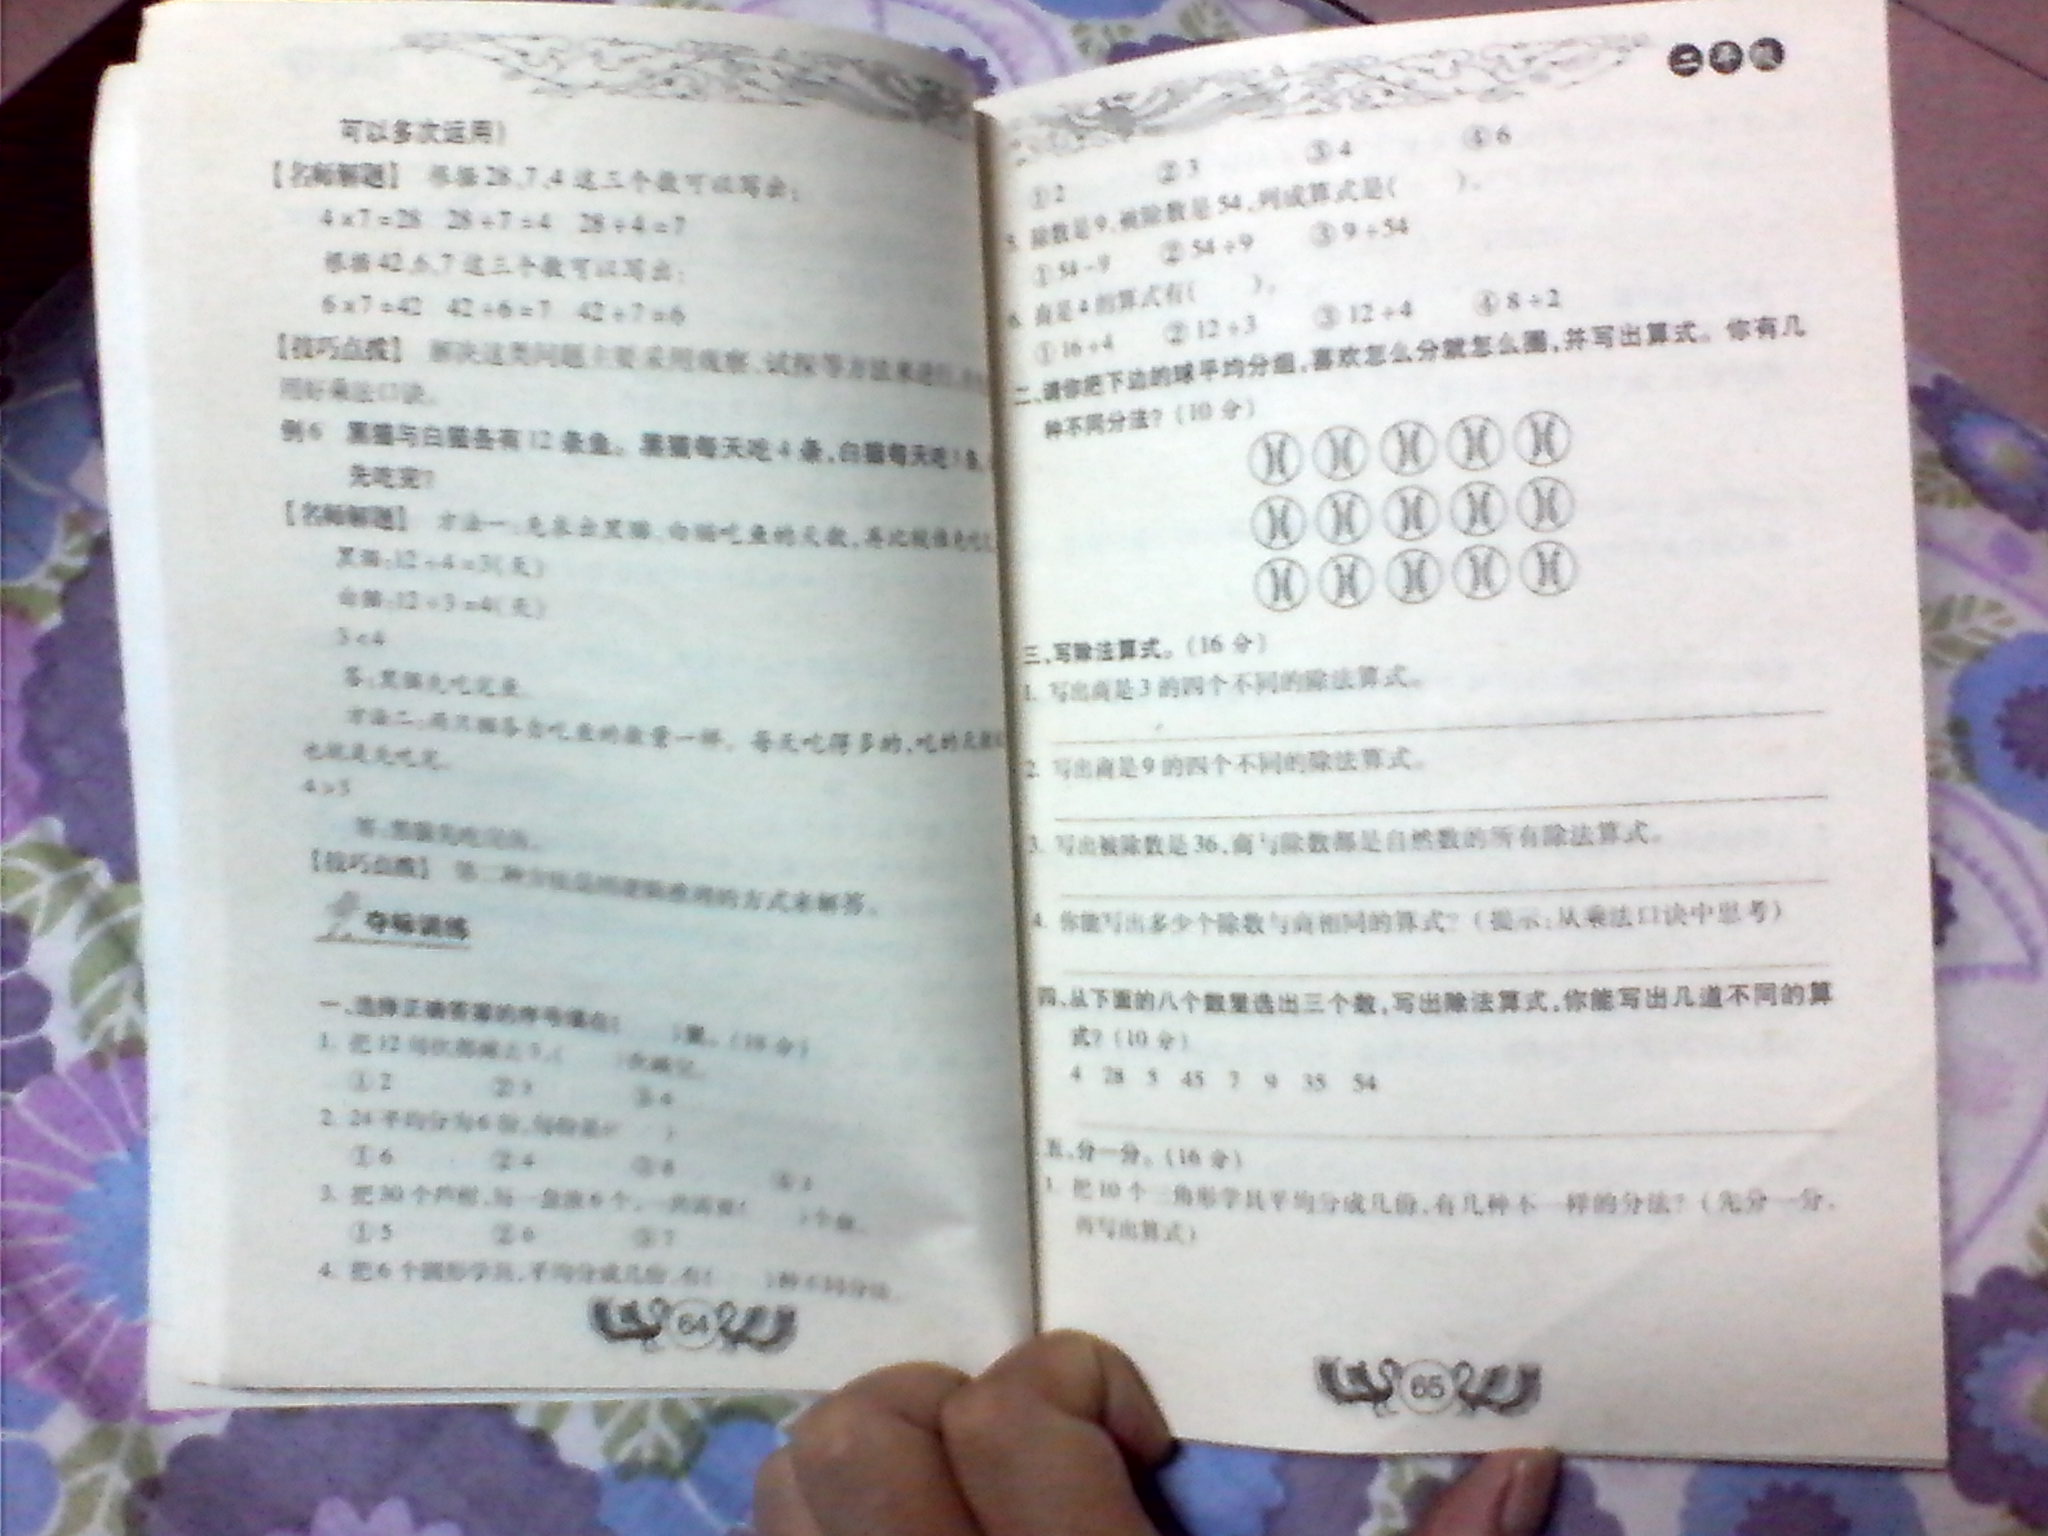 可以多次运用)
【名师解题】 根据28、7、4这三个数可以写出:
4×7=28 28÷7=4 28÷4=7
根据42、6、7这三个数可以写出:
6×7=42 42÷6=7 42÷7=6
【技巧点拨】 解决这类问题主要采用观察、试探等方法来进行,
用好乘法口诀。
例6 黑猫与白猫各有12条鱼。黑猫每天吃4条,白猫每天吃3条,
先吃完?
【名师解题】 方法一:先求出黑猫、白猫吃鱼的天数,再比较谁先吃
黑猫:12÷4=3(天)
白猫:12÷3=4(天)
3<4
答:黑猫先吃完鱼。
方法二:两只猫各自吃鱼的数量一样。每天吃得多的,吃的天数
也就是先吃完。
4>3
答:黑猫先吃完鱼。
【技巧点拨】 第二种方法是用逻辑推理的方式来解答。
夺标训练
一、选择正确答案的序号填在( )里。(18分)
1. 把12每次都减去3,( )次减完。
①2 ②3 ③4
2. 24平均分为6份,每份是( )
①6 ②4 ③8 ④3
3. 把30个 ,每一盘放6个,一共需要( )个盘。
①5 ②6 ③7
4. 把6个圆形学具,平均分成几份,有( )种不同分法。
64
二年级
①2 ②3 ③4 ④6
5. 除数是9,被除数是54,列成算式是( )。
①54-9 ②54÷9 ③9÷54
6. 商是4的算式有( )。
①16÷4 ②12÷3 ③12÷4 ④8÷2
二、请你把下边的球平均分组,喜欢怎么分就怎么圈,并写出算式。你有几
种不同分法?(10分)
三、写除法算式。(16分)
1. 写出商是3的四个不同的除法算式。
2. 写出商是9的四个不同的除法算式。
3. 写出被除数是36,商与除数都是自然数的所有除法算式。
4. 你能写出多少个除数与商相同的算式?(提示:从乘法口诀中思考)
四、从下面的八个数里选出三个数,写出除法算式,你能写出几道不同的算
式?(10分)
4 28 5 45 7 9 35 54
五、分一分。(16分)
1. 把10个三角形学具平均分成几份,有几种不一样的分法?(先分一分,
再写出算式)
65